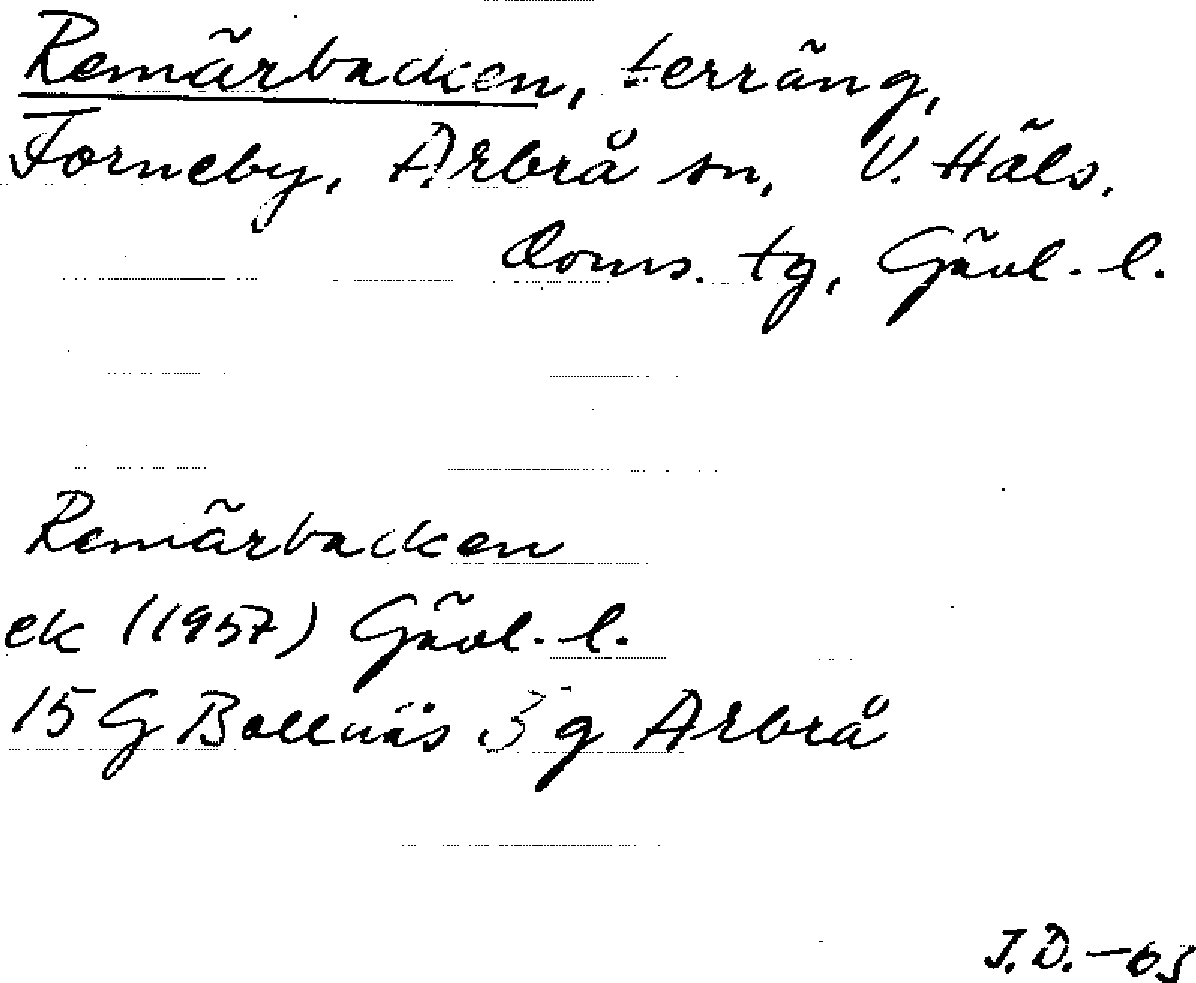 Remärbacken, terräng,
Forneby, Arbrå sn, V. Häls.
doms. tg, Gävl. l.
Remärbacken
ek (1957) Gävl. l.
15 G Bollnäs 3 g Arbrå
J.D. -63